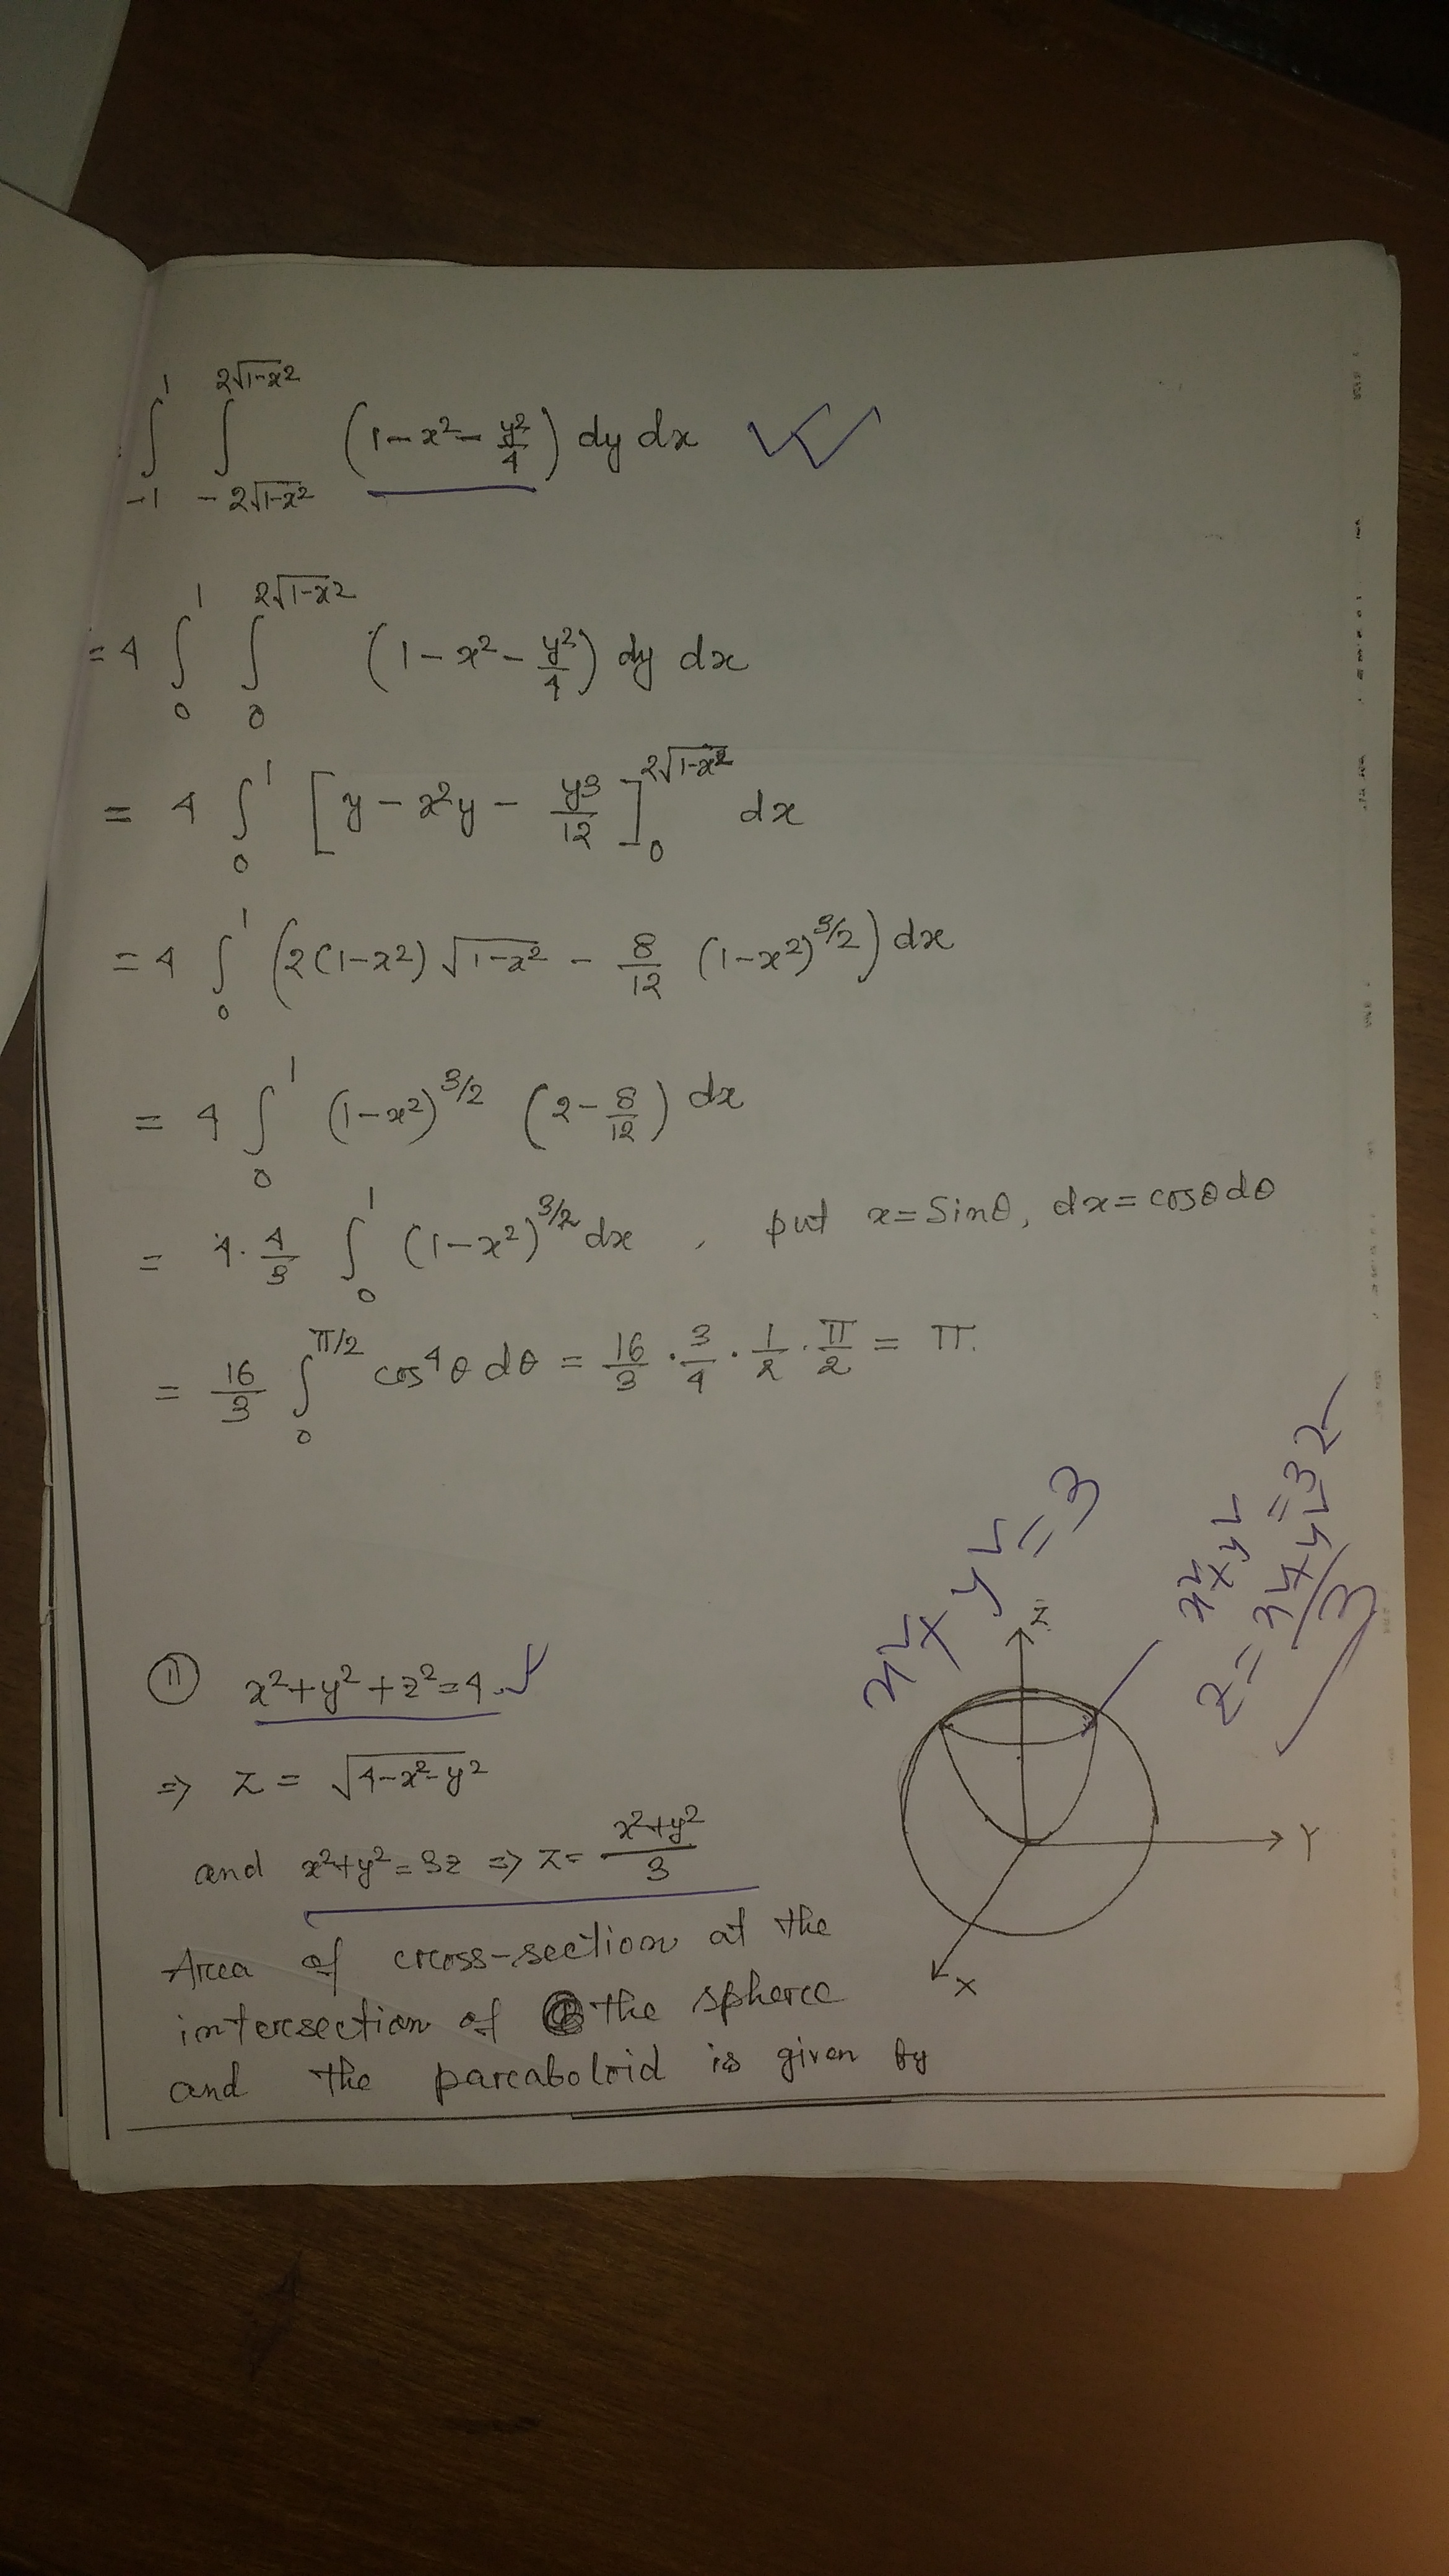 ∫_{-1}^{1} ∫_{-2√(1-x²)}^{2√(1-x²)} (1-x²-y²/4) dy dx
= 4 ∫_0^1 ∫_0^{2√(1-x²)} (1-x²-y²/4) dy dx
= 4 ∫_0^1 [y-x²y-y³/12]_0^{2√(1-x²)} dx
= 4 ∫_0^1 (2(1-x²)√(1-x²) - 8/12 (1-x²)^{3/2}) dx
= 4 ∫_0^1 (1-x²)^{3/2} (2-8/12) dx
= 4·4/3 ∫_0^1 (1-x²)^{3/2} dx , put x=Sinθ, dx=cosθdθ
= 16/3 ∫_0^{π/2} cos⁴θ dθ = 16/3 · 3/4 · 1/2 · π/2 = π.
x²+y²=3
x²+y²=3z
z=(x²+y²)/3
Z
Y
X
(11) x²+y²+z²=4
⇒ z = √(4-x²-y²)
and x²+y²=3z ⇒ z=(x²+y²)/3
Area of cross-section at the
intersection of the sphere
and the paraboloid is given by